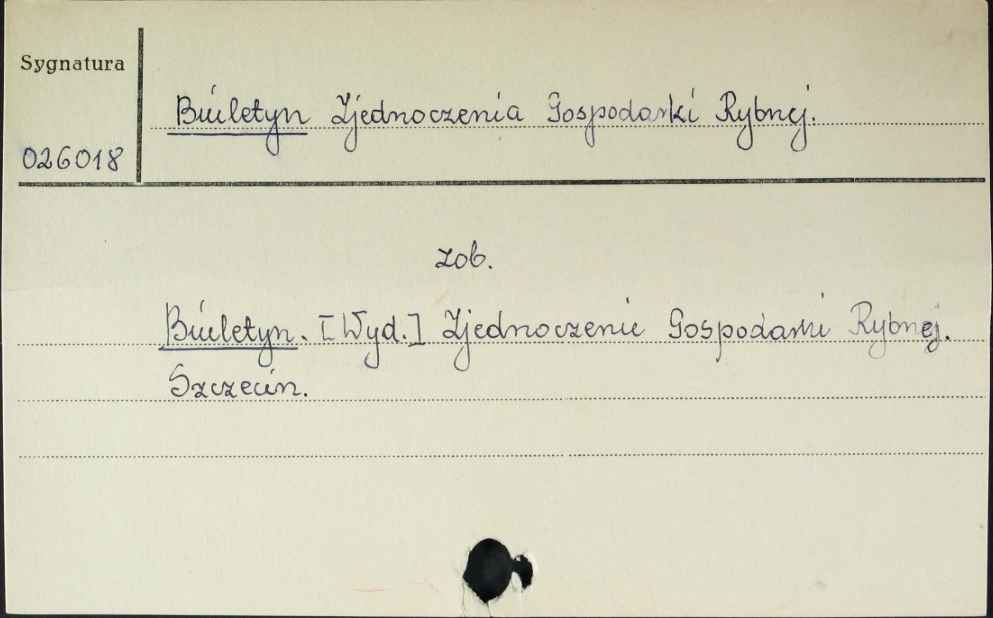 Sygnatura
Biuletyn Zjednoczenia Gospodarki Rybnej.
026018
zob.
Biuletyn. [Wyd.] Zjednoczenie Gospodarki Rybnej.
Szczecin.